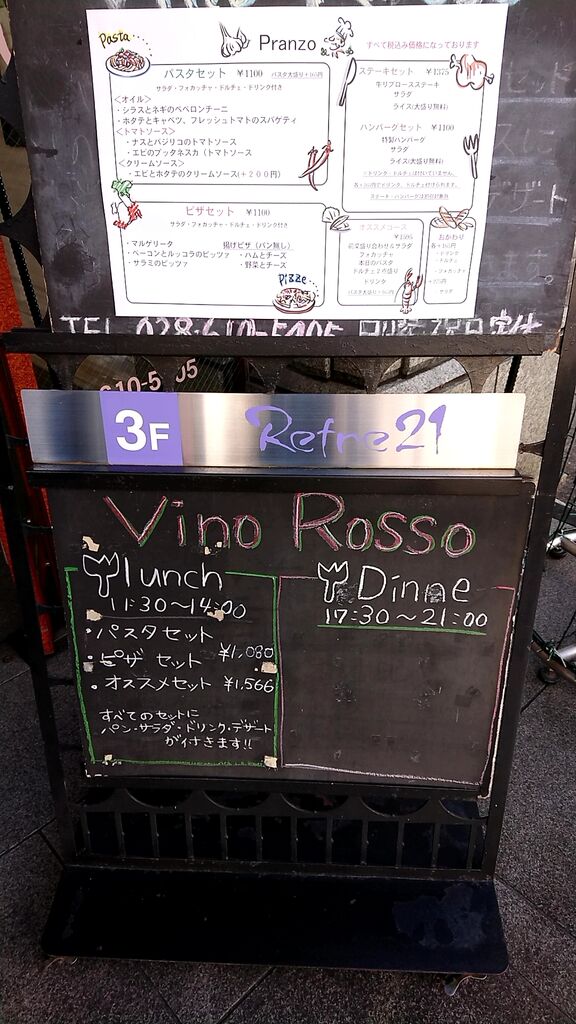 Pasta
Pranzo
すべて税込み価格になっております
パスタセット ￥1100 パスタ大盛り+165円
サラダ・フォカッチャ・ドルチェ・ドリンク付き
＜オイル＞
・シラスとネギのペペロンチーニ
・ホタテとキャベツ、フレッシュトマトのスパゲティ
＜トマトソース＞
・ナスとバジリコのトマトソース
・エビのプッタネスカ（トマトソース
＜クリームソース＞
・エビとホタテのクリームソース(+２００円)
ステーキセット ￥1375
牛リブロースステーキ
サラダ
ライス(大盛り無料)
ハンバーグセット ￥1100
特製ハンバーグ
サラダ
ライス(大盛り無料)
ピザセット ￥1100
サラダ・フォカッチャ・ドルチェ・ドリンク付き
・マルゲリータ
・ベーコンとルッコラのピッツァ
・サラミのピッツァ
揚げピザ（パン無し）
・ハムとチーズ
・野菜とチーズ
Pizze
オススメコース
前菜盛り合わせorサラダ
フォカッチャ
本日のパスタ
ドルチェ２の盛り
ドリンク
おかわり
・ドリンク
・ドルチェ
・フォカッチャ
サラダ
TEL 028-610-5
10-5 05
3F Refre21
Vino Rosso
lunch
11:30～14:00
・パスタセット
・ピザ セット ¥1,080
・オススメセット ¥1,566
すべてのセットに
パン・サラダ・ドリンク・デザート
が付きます!!
Dinne
17:30～21:00